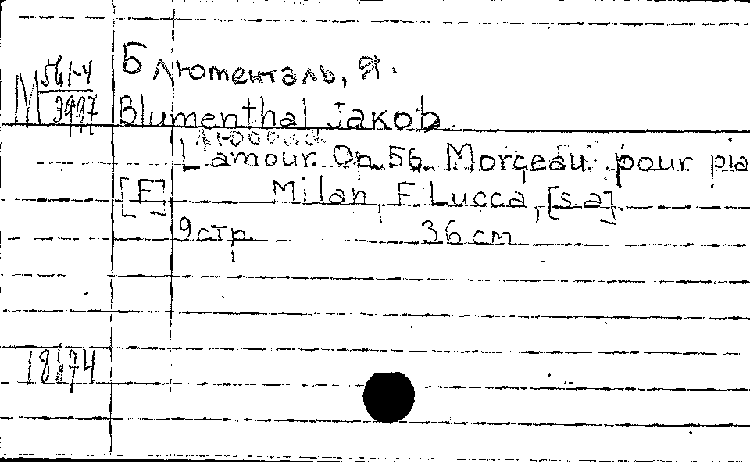 Блюменталь, Я.
M 561-4
3997
Blumenthal Jакоb.
Любовь
L'amour. Op. 56. Morçeau pour pia
[F] Milan, F. Lucca, [s.a].
9 стр. 36 см
18174